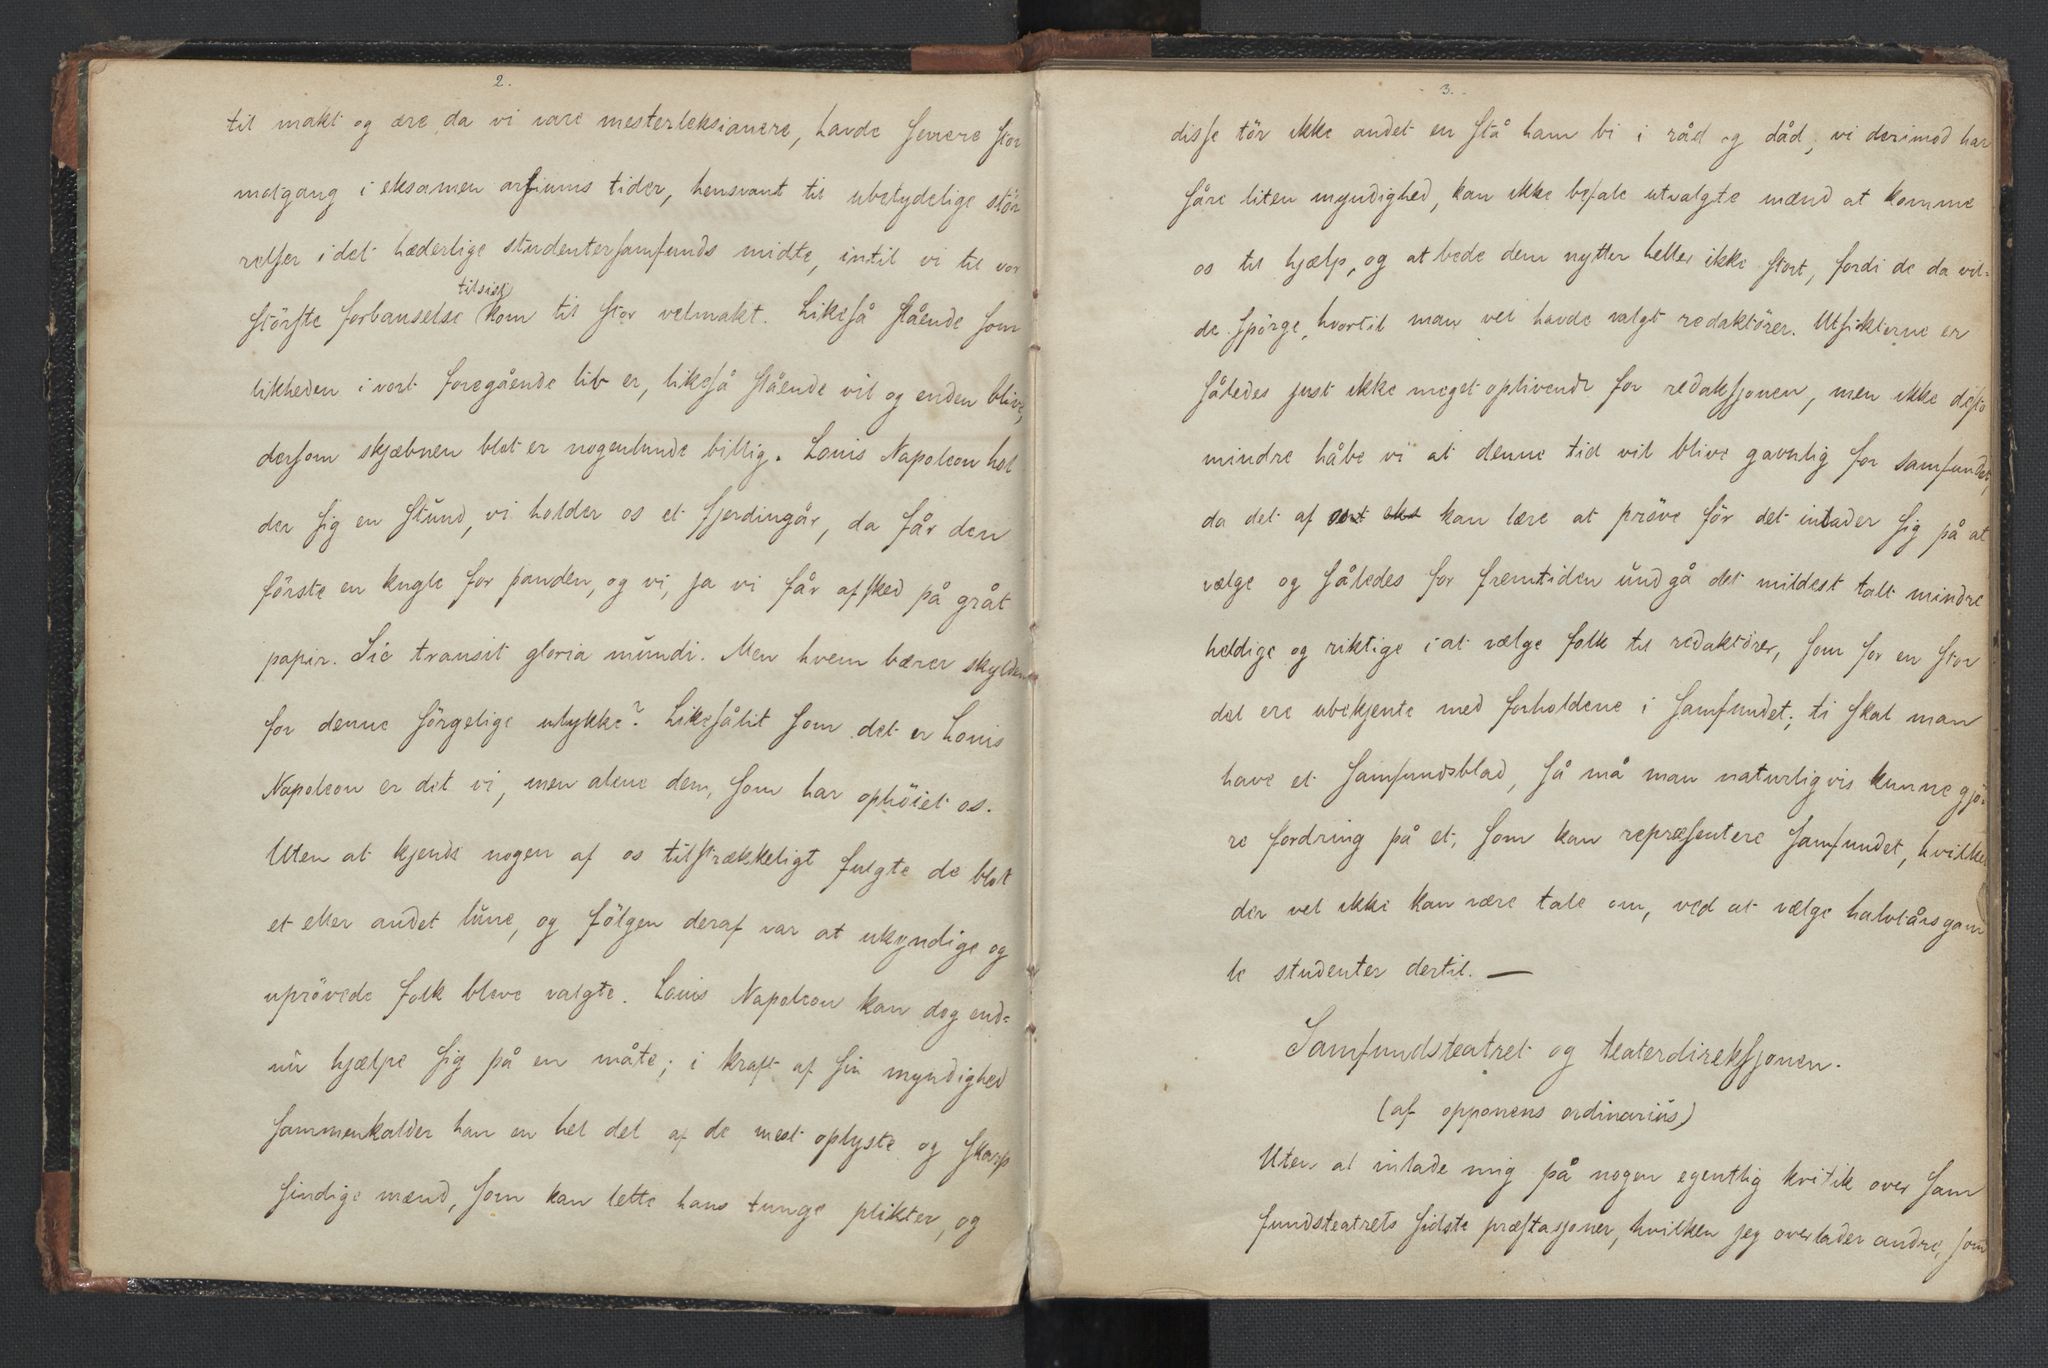 2.
til makt og ære da vi vare mesterleksianere, havde senere stor
motgang i eksamen artiums tider, hensvant til ubetydelige stör
relser i det hæderlige studentersamfunds midte, intil vi til vor
störste forbauselse tilsist kom til stor velmakt. Likeså slående som
likheden i vort foregående liv er, likeså slående vil og enden blive,
dersom skjæbnen blot er nogenlunde billig. Louis Napoleon hol
der sig en stund, vi holder os et fjerdingår, da får den
förste en kugle for panden, og vi, ja vi får afsked på gråt
papir. Sic transit gloria mundi. Men hvem bærer skylden
for denne sörgelige ulykke? Likesålit som det er Louis
Napoleon er det vi, men alene dem, som har ophöiet os.
Uten at kjende nogen af os tilstrækkeligt fulgte de blot
et eller andet lune, og fölgen deraf var at ukyndige og
uprövede folk bleve valgte. Louis Napoleon kan dog end=
nu hjælpe sig på en måte; i kraft af sin myndighed
sammenkalder han en hel del af de mest oplyste og skarp
sindige mænd, som kan lette hans tunge plikter, og
3.
disse tör ikke andet en stå ham bi i råd og dåd, vi derimod har
såre liten myndighed, kan ikke befale utvalgte mænd at komme
os til hjælp, og at bede dem nytter heller ikke stort, fordi de da vil=
de spörge, hvortil man vel havde valgt redaktörer. Utsikterne er
således just ikke meget oplivende for redaksjonen, men ikke desto
mindre håbe vi at denne tid vil blive gavnlig for samfundet,
da det af vort eks kan lære at pröve för det inlader sig på at
vælge og således for fremtiden undgå det mildest talt mindre
heldige og riktige i at vælge folk til redaktörer, som for en stor
del ere ubekjente med forholdene i samfundet; ti skal man
have et samfundsblad, så må man naturligvis kunne gjö=
re fordring på et, som kan repræsentere samfundet, hvilket
der vel ikke kan være tale om, ved at vælge halvtårsgam
le studenter dertil. —
Samfundsteatret og teaterdireksjonen.
(af opponens ordinarius)
Uten at inlade mig på nogen egentlig kritik over sam
fundsteatrets sidste præstasjoner, hvilken jeg overlader andre, som